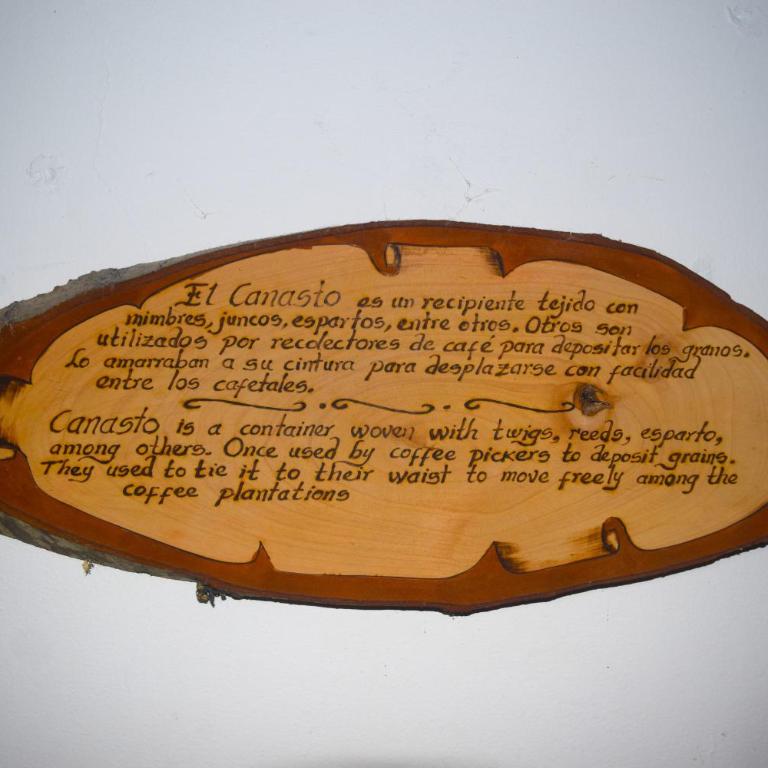 El Canasto es un recipiente tejido con
mimbres, juncos, espartos, entre otros. Otros son
utilizados por recolectores de café para depositar los granos.
Lo amarraban a su cintura para desplazarse con facilidad
entre los cafetales.
Canasto is a container woven with twigs, reeds, esparto,
among others. Once used by coffee pickers to deposit grains.
They used to tie it to their waist to move freely among the
coffee plantations